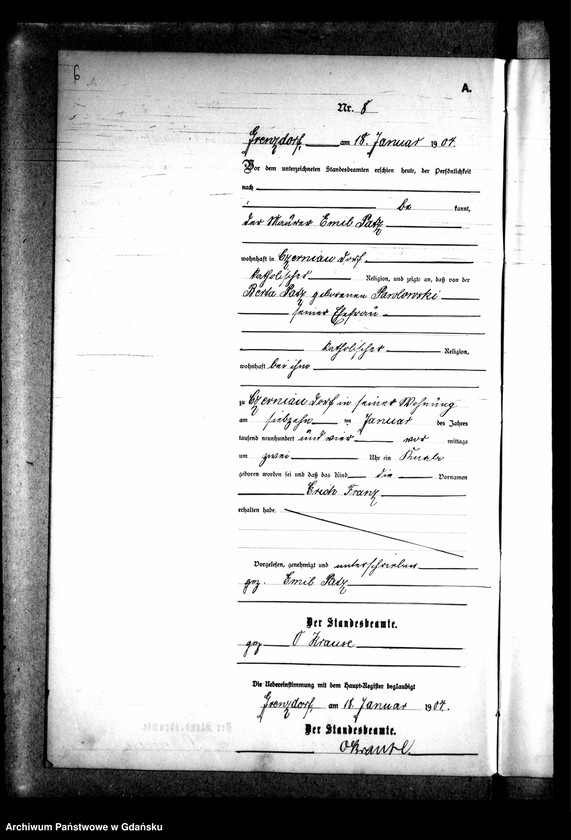 6
A.
Nr. 8
Grenzdorf, am 18. Januar 1904.
Vor dem unterzeichneten Standesbeamten erschien heute, der Persönlichkeit
nach
be kannt,
der Maurer Emil Patz
wohnhaft in Czerniau Dorf
katholischer Religion, und zeigte an, daß von der
Berta Patz geborenen Pawlowski
seiner Ehefrau
katholischer Religion,
wohnhaft bei ihm
zu Czerniau Dorf in seiner Wohnung
am siebzehn ten Januar des Jahres
tausend neunhundert und vier vor mittags
um zwei Uhr ein Knabe
geboren worden sei und daß das Kind die Vornamen
Erich Franz
erhalten habe.
Vorgelesen, genehmigt und unterschrieben
gez. Emil Patz
Der Standesbeamte.
gez O Krause
Die Uebereinstimmung mit dem Haupt-Register beglaubigt
Grenzdorf, am 18. Januar 1904.
Der Standesbeamte.
O Krause.
Archiwum Państwowe w Gdańsku